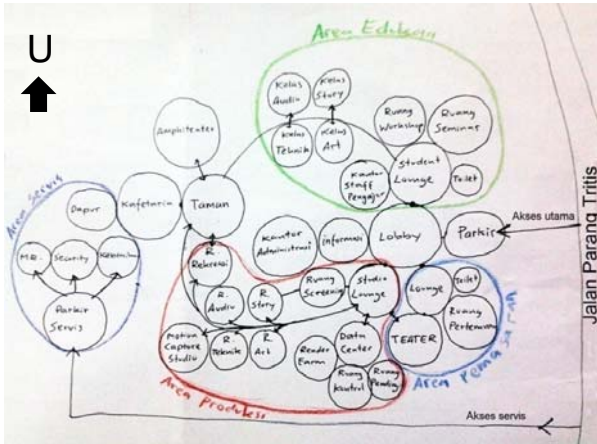 U
Area Edukasi
Kelas
Audio
Kelas
Story
Kelas
Teknik
Kelas
Art
Ruang
Workshop
Ruang
Seminar
Kantor
Staff
Pengajar
Student
Lounge
Toilet
Amphiteater
Taman
Kafetaria
Dapur
Area Servis
M.E.
Security
Parkir
Servis
Kantor
Administrasi
informasi
Lobby
Parkir
Akses utama
Jalan Parang Tritis
R.
Rekreasi
R.
Audio
R.
Story
Ruang
Screening
Studio
Lounge
Motion
Capture
Studio
R.
Teknik
R.
Art
Render
Farm
Data
Center
Ruang
Kontrol
Ruang
Area Produksi
Lounge
Toilet
Ruang
Pertemuan
TEATER
Area Pemasaran
Akses servis